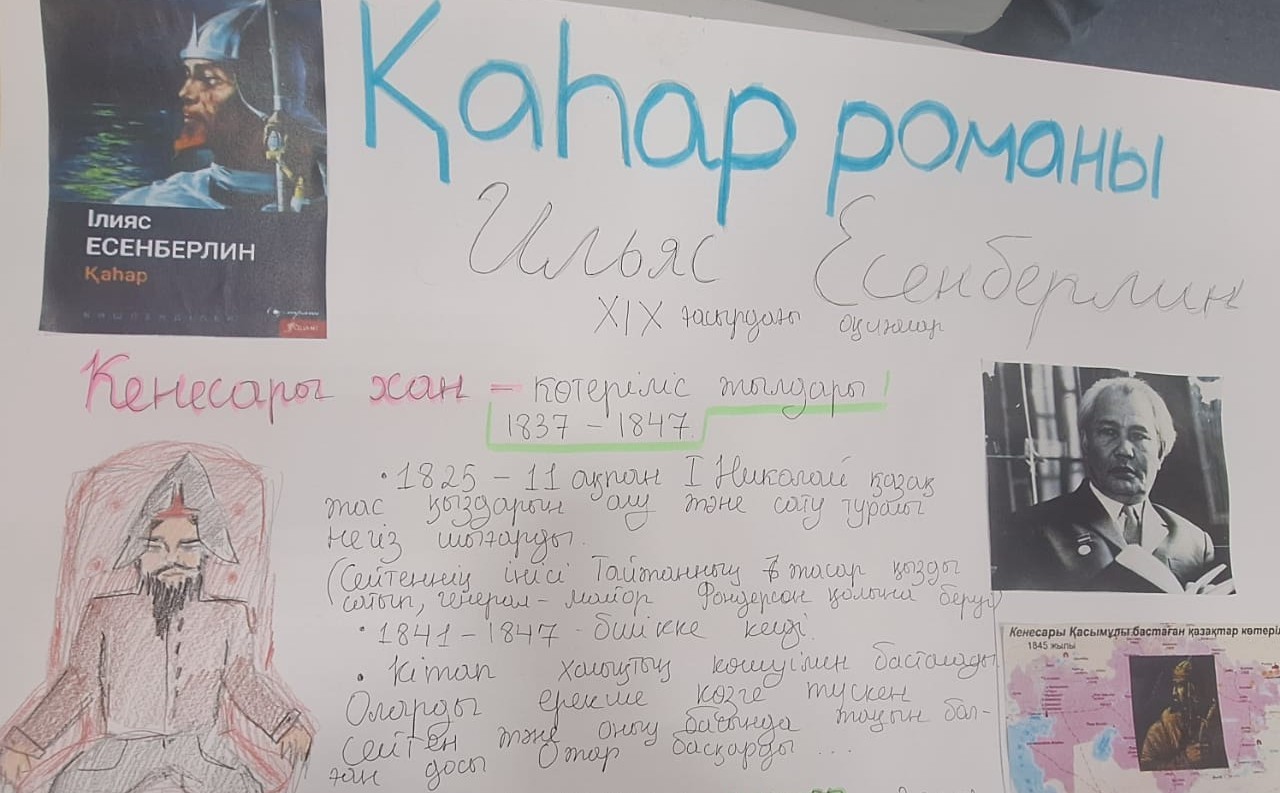 Қаһар романы
Ілияс
ЕСЕНБЕРЛИН
Қаһар
КӨШПЕНДІЛЕР
Ильяс Есенберлин
XIX ғасырдағы оқиғалар
Кенесары хан = көтеріліс жылдары
1837 – 1847.
• 1825 – 11 ақпан I Николай қазақ
жас қыздарын алу және сату туралы
негіз шығарды.
(Сейтеннің інісі Тайжанның 7 жасар қызды
сатып, генерал – майор Фондерсон қолына беруі)
• 1841 – 1847 - билікке келді.
• Кітап халықтың көшуімен басталады
Оларды ерекше көзге түскен
Сейтен және оның басында жақын бол-
ған досы Ожар басқарды ...
Кенесары Қасымұлы бастаған қазақтар көтеріл
1845 жылы